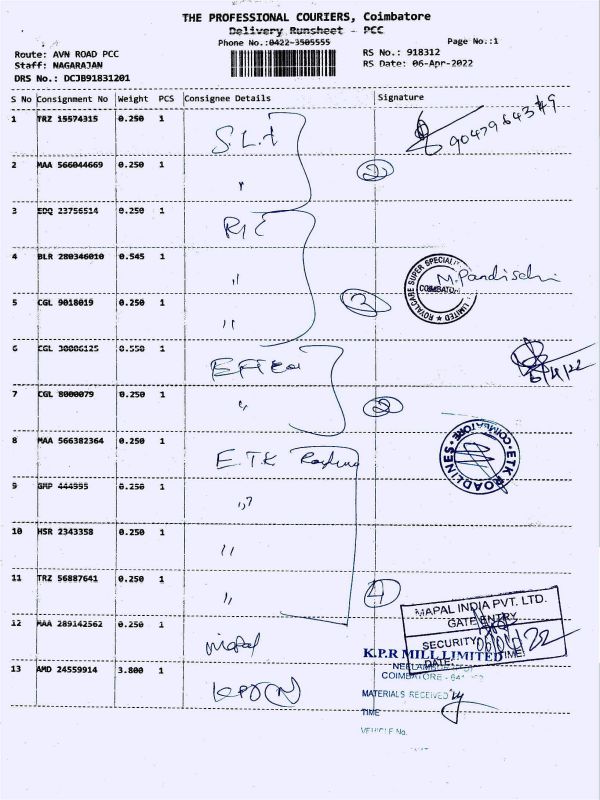 THE PROFESSIONAL COURIERS, Coimbatore
Delivery Runsheet - PCC
Phone No.:0422-3505555
Page No.:1
Route: AVN ROAD PCC
Staff: NAGARAJAN
DRS No.: DCJB91831201
RS No.: 918312
RS Date: 06-Apr-2022
S No Consignment No Weight PCS Consignee Details Signature
1 TRZ 15574315 0.250 1 S.L.I
2 MAA 566044669 0.250 1 " 2
3 EDQ 23756514 0.250 1
4 BLR 280346010 0.545 1 "
ROYALCARE SUPER SPECIALI
COIMBATO
LIMITED
5 CGL 9018019 0.250 1 " 3
6 CGL 30006125 0.550 1
7 CGL 8000079 0.250 1 " 2
8 MAA 566382364 0.250 1 E.T.K
ETK ROADLINES
COIMBATORE
9 GMP 444995 0.250 1 "
10 HSR 2343358 0.250 1 "
11 TRZ 56887641 0.250 1 " 4
12 MAA 289142562 0.250 1 mapal
MAPAL INDIA PVT. LTD.
GATE ENTRY
SECURITY
DATE: TIME:
K.P.R MILL LIMITED
13 AMD 24559914 3.800 1
COIMBATORE
MATERIALS RECEIVED
TIME
VEHICLE No.